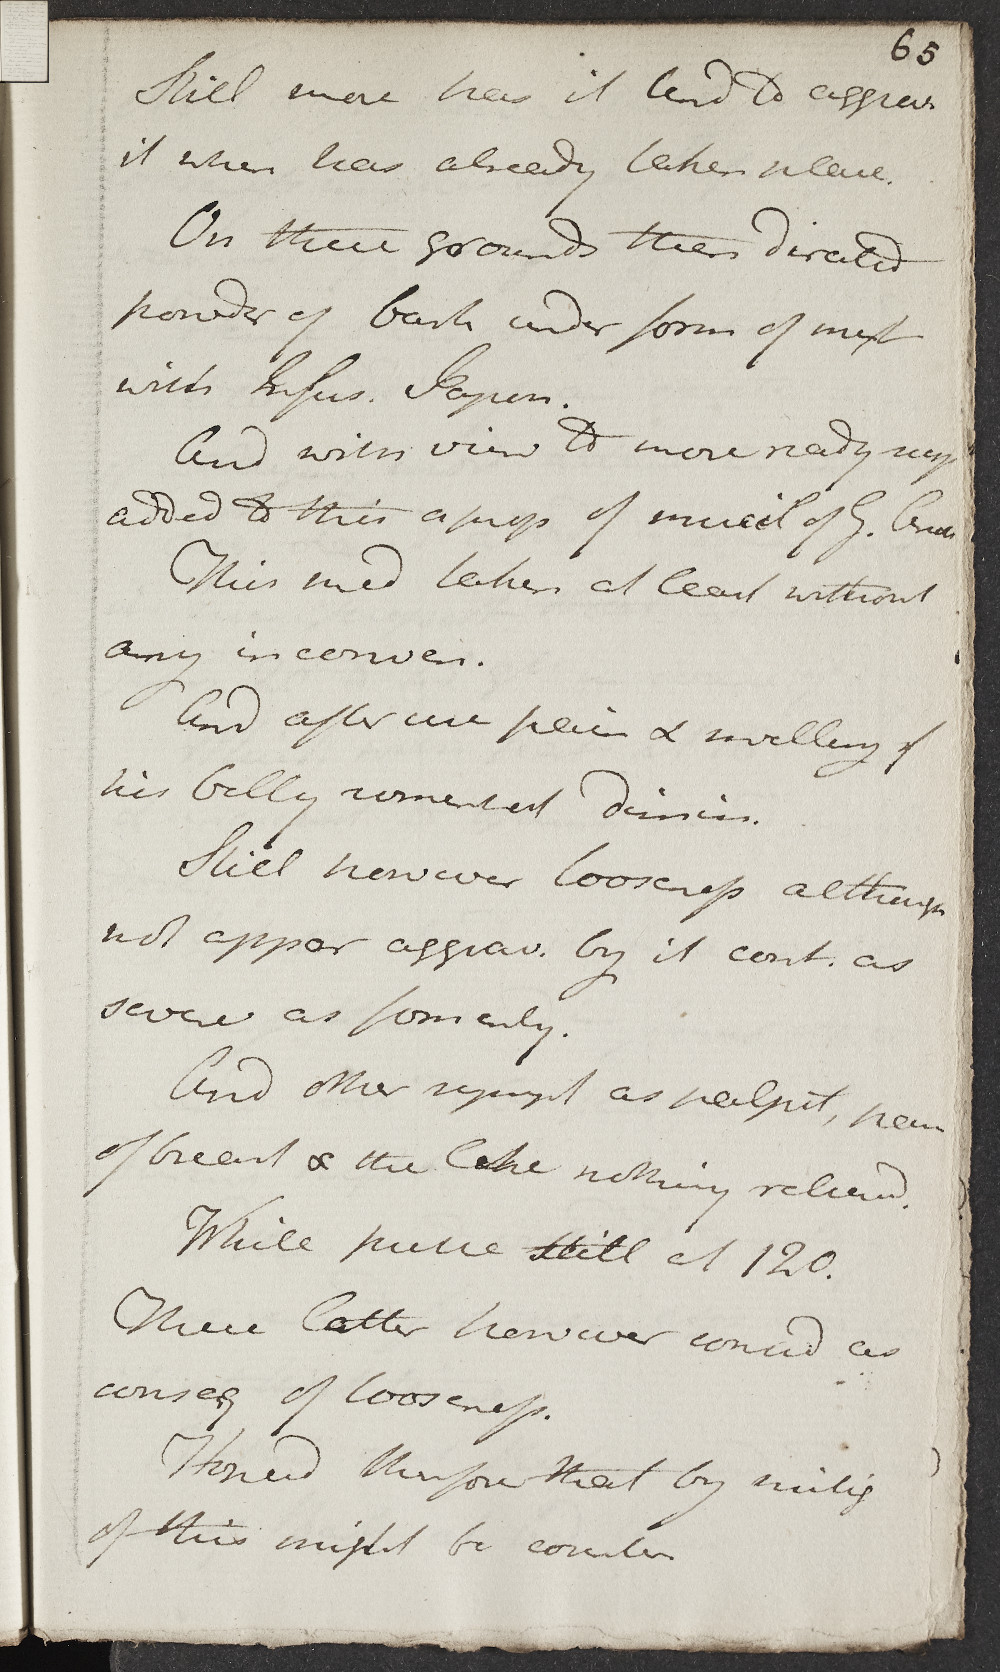 65
Still more has it tend to aggrav
it when has already taken place.
On these grounds then directed
powder of bark under form of mixt
with Infus. Japon.
And with view to more ready susp
added to this a prop of mucil of G. Arab
This med taken at least without
any inconven.
And after use pain & swelling of
his belly somewhat dimin.
Still however looseness although
not appear aggrav. by it cont. as
severe as formerly.
And other sympt as palpit, pain
of breast & the like nothing relieved.
While pulse still at 120.
These latter however consid as
conseq of looseness.
Hoped therefore that by mitig
of this might be counter